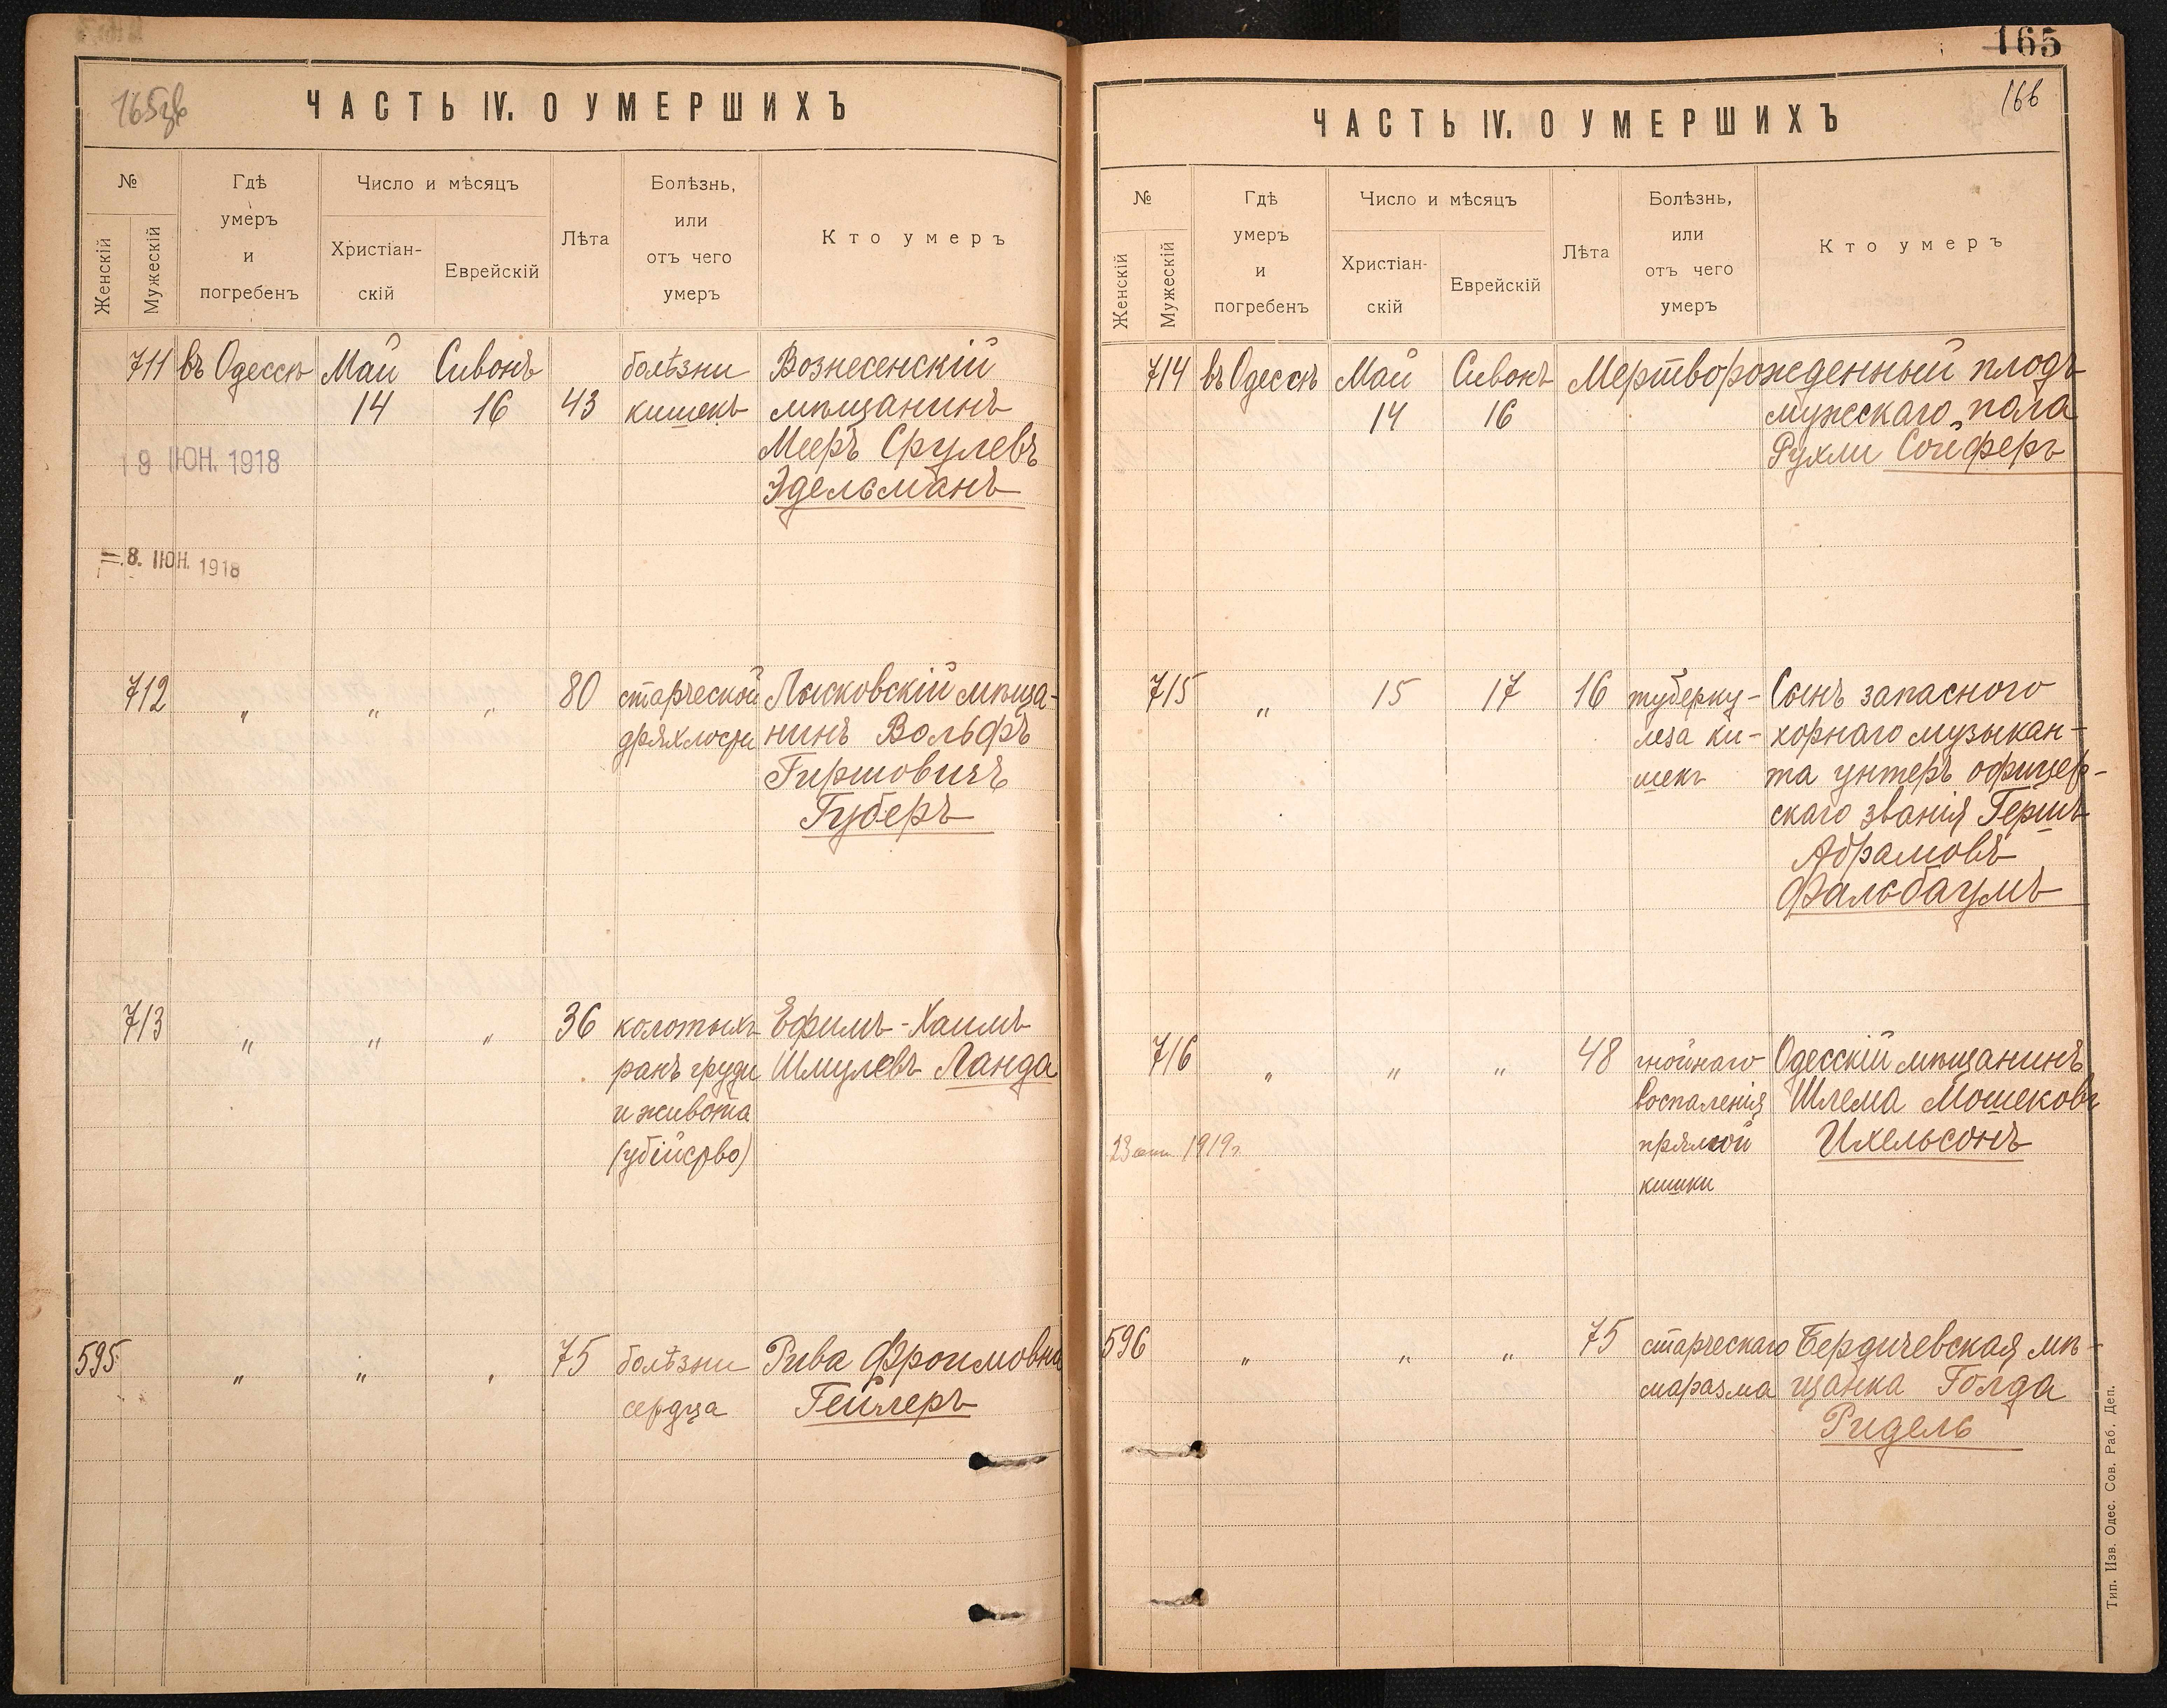 165зв
ЧАСТЬ IV. О УМЕРШИХЪ
№
Женскій
Мужескій
Гдѣ
умеръ
и
погребенъ
Число и мѣсяцъ
Христіан-
скій
Еврейскій
Лѣта
Болѣзнь,
или
отъ чего
умеръ
Кто умеръ
711 въ Одессѣ Май Сивонъ болѣзни Вознесенскій
14 16 43 кишекъ мѣщанинъ
Мееръ Срулевъ
Эдельманъ
19 ІЮН. 1918
8. ІЮН. 1918
712 " " " 80 старческой Лысковскій мѣща-
дряхлости нинъ Вольфъ
Гиршовичъ
Губеръ
713 " " " 36 колотыхъ Ефимъ-Хаимъ
ранъ груди Шмулевъ Ланда
и живота
(убійство)
595 " " " 75 болѣзни Рива Фроимовна
сердца Гейлеръ
165
166
ЧАСТЬ IV. О УМЕРШИХЪ
№
Женскій
Мужескій
Гдѣ
умеръ
и
погребенъ
Число и мѣсяцъ
Христіан-
скій
Еврейскій
Лѣта
Болѣзнь,
или
отъ чего
умеръ
Кто умеръ
714 въ Одессѣ Май Сивонъ Мертворожденный плодъ
14 16 мужескаго пола
Рухли Сойферъ
715 " 15 17 16 туберку- Сынъ запасного
леза ки- хорнаго музыкан-
шекъ та унтеръ офицер-
скаго званія Гершъ
Абрамовъ
Фальбаумъ
716 " " " 48 гнойнаго Одесскій мѣщанинъ
воспаленія Шлема Мошековъ
23 1919г. прямой Ихельсонъ
кишки
596 " " " 75 старческаго Бердичевская мѣ-
маразма щанка Голда
Ридель
Тип. Изв. Одес. Сов. Раб. Деп.